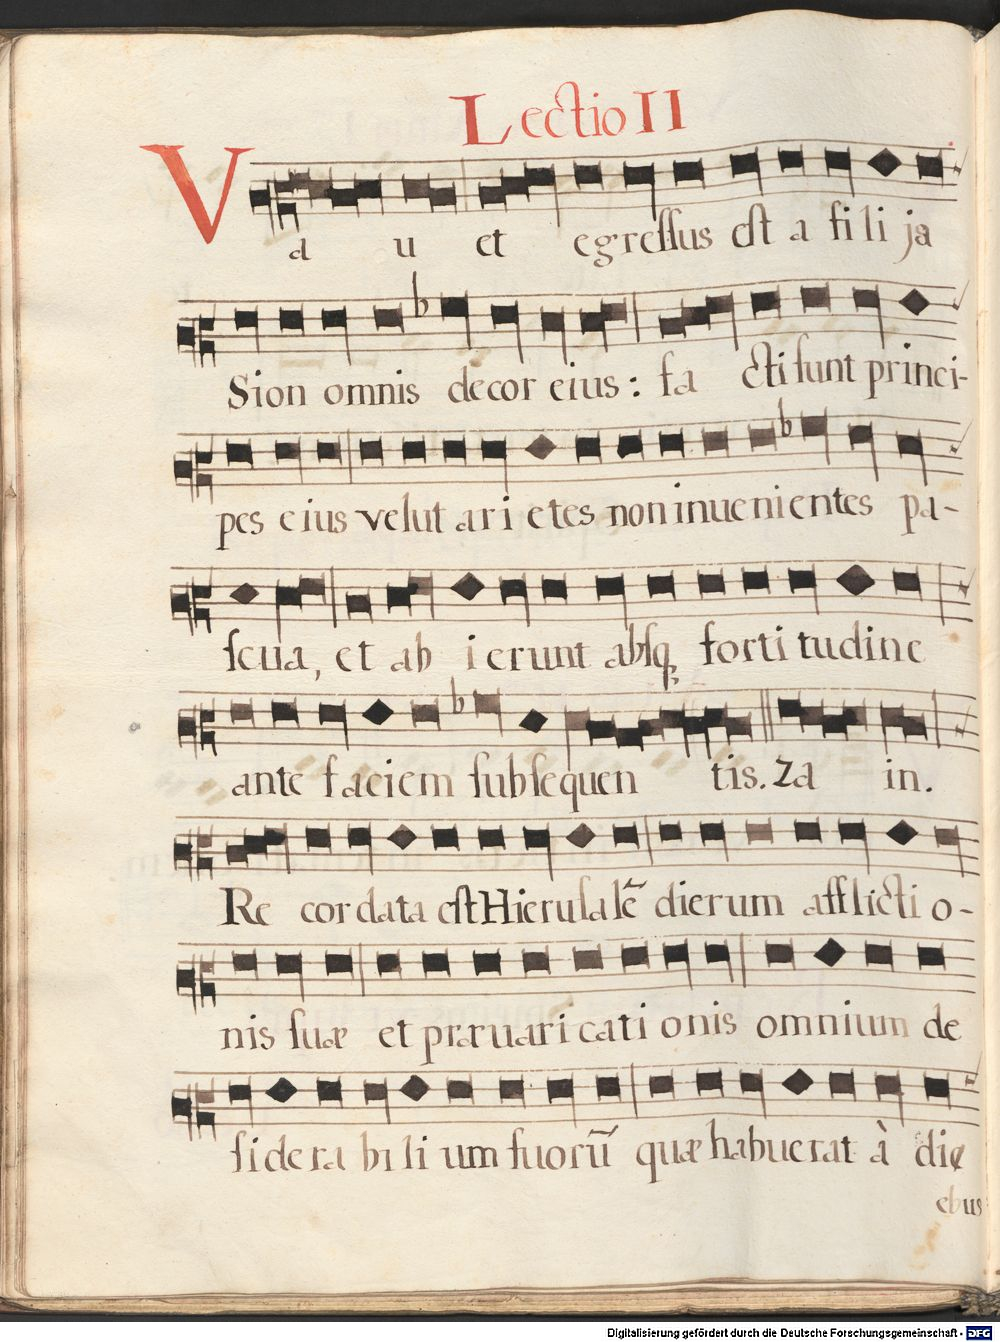 Lectio II
Va u et egressus est a fi li ja
Sion omnis decor eius : fa cti sunt princi-
pes eius velut ari etes non inuenientes pa-
scua, et ab ierunt absq, forti tudine
ante faciem subsequen tis. Za in.
Re cordata est Hierusalē dierum afflicti o-
nis suæ et præuaricationis omnium de
sidera bi li um suorū quæ habuerat à die
ebus
Digitalisierung gefördert durch die Deutsche Forschungsgemeinschaft - DFG